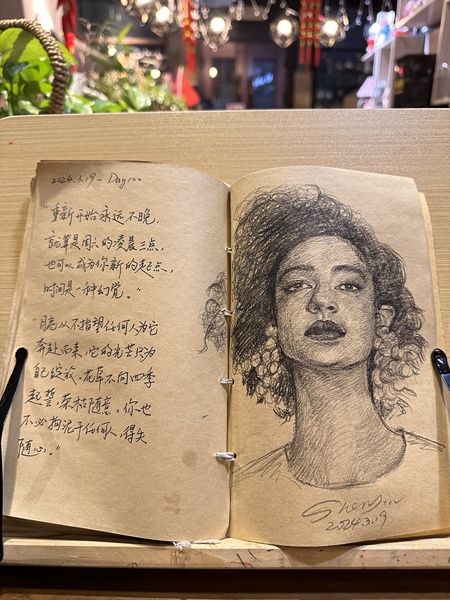 2024.3.19 - Day100
"重新开始永远不晚,
就算是周六的凌晨三点,
也可以成为你新的起点,
时间是一种幻觉。"
"月亮从不指望任何人为它
奔赴而来,它的光芒只为
自己绽放,花草不向四季
起誓,荣枯随意,你也
不必拘泥于任何人,得失
随心。"
Shenyin
2024.3.19